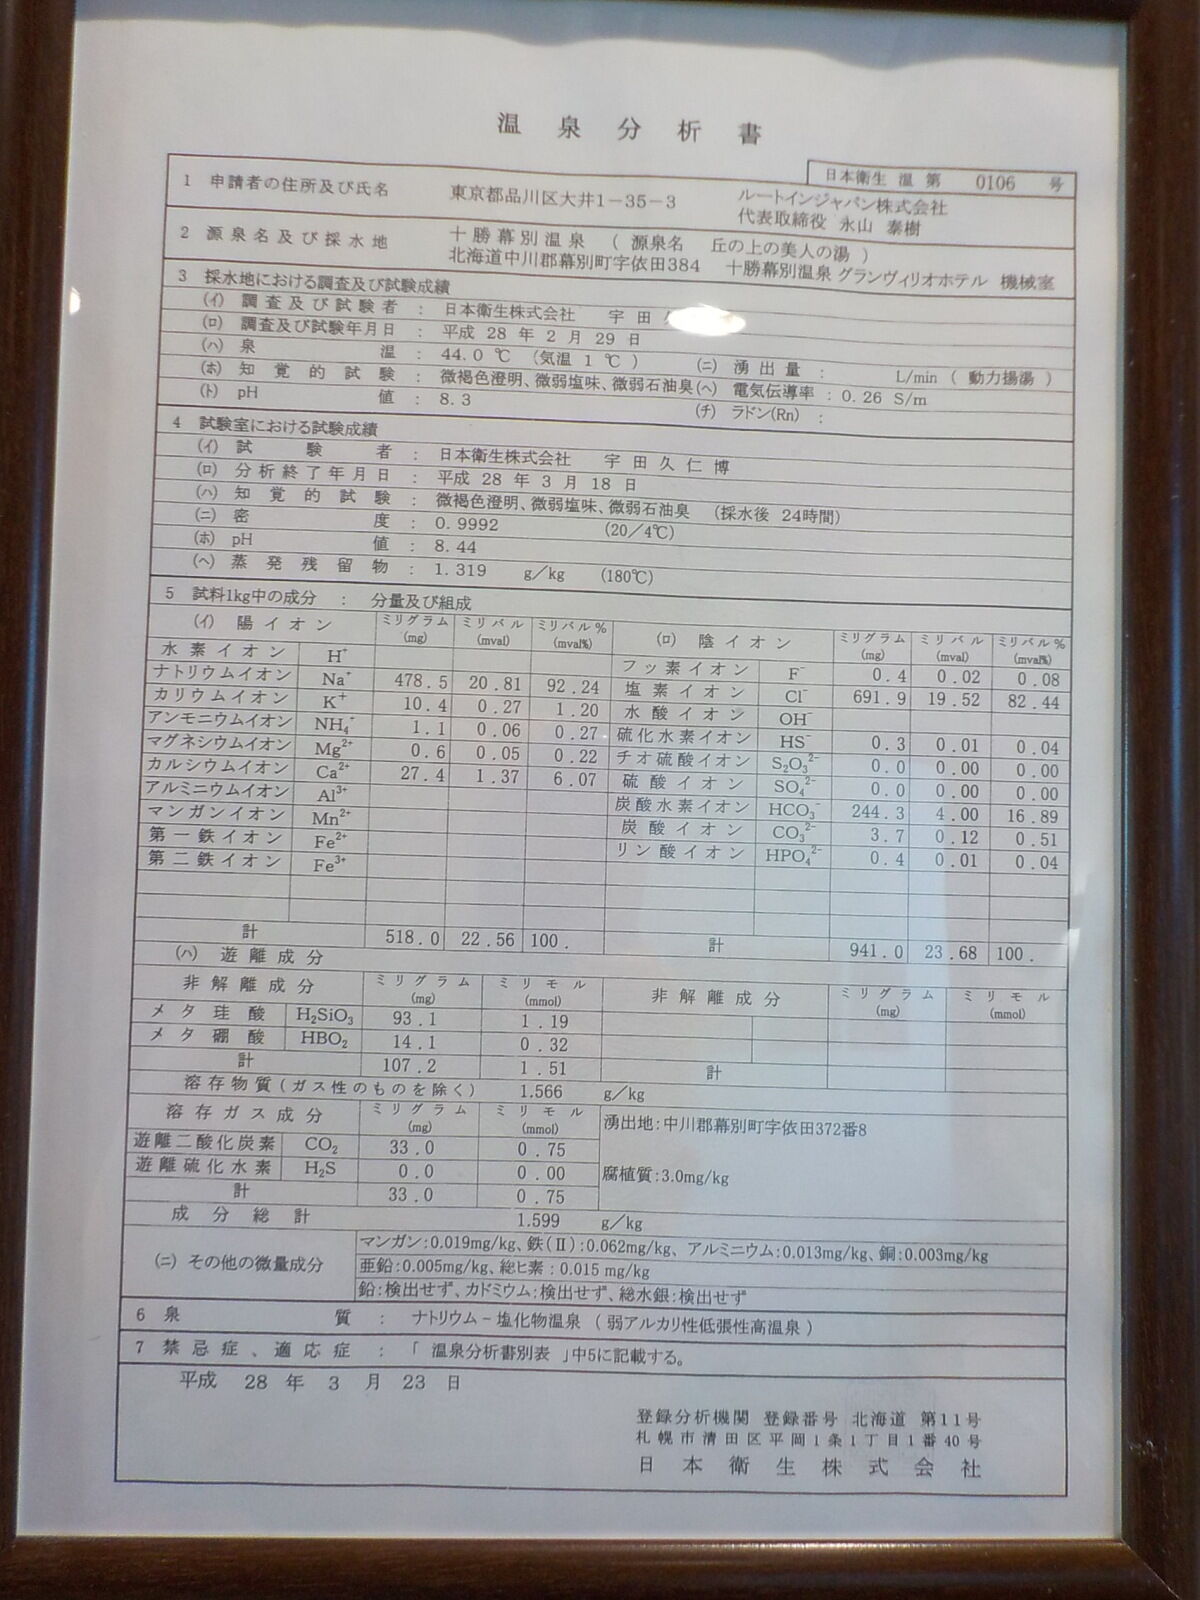 温泉分析書
日本衛生 温 第 0106 号
1 申請者の住所及び氏名 東京都品川区大井1－35－3 ルートインジャパン株式会社
代表取締役 永山 泰樹
2 源泉名及び採水地 十勝幕別温泉 （ 源泉名 丘の上の美人の湯 ）
北海道中川郡幕別町字依田384 十勝幕別温泉 グランヴィリオホテル 機械室
3 採水地における調査及び試験成績
(イ) 調査及び試験者 : 日本衛生株式会社 宇田
(ロ) 調査及び試験年月日 : 平成 28 年 2 月 29 日
(ハ) 泉温 : 44.0 ℃ (気温 1 ℃ ) (ニ) 湧出量 : L/min ( 動力揚湯 )
(ホ) 知覚的試験 : 微褐色澄明、微弱塩味、微弱石油臭 (ヘ) 電気伝導率 : 0.26 S/m
(ト) pH値 : 8.3 (チ) ラドン(Rn) :
4 試験室における試験成績
(イ) 試験者 : 日本衛生株式会社 宇田久仁博
(ロ) 分析終了年月日 : 平成 28 年 3 月 18 日
(ハ) 知覚的試験 : 微褐色澄明、微弱塩味、微弱石油臭 (採水後 24時間)
(ニ) 密度 : 0.9992 (20／4℃)
(ホ) pH値 : 8.44
(ヘ) 蒸発残留物 : 1.319 g／kg (180℃)
5 試料1kg中の成分 : 分量及び組成
(イ) 陽イオン ミリグラム (mg) ミリバル (mval) ミリバル％ (mval%) (ロ) 陰イオン ミリグラム (mg) ミリバル (mval) ミリバル％ (mval%)
水素イオン H⁺ フッ素イオン F⁻ 0.4 0.02 0.08
ナトリウムイオン Na⁺ 478.5 20.81 92.24 塩素イオン Cl⁻ 691.9 19.52 82.44
カリウムイオン K⁺ 10.4 0.27 1.20 水酸イオン OH⁻
アンモニウムイオン NH₄⁺ 1.1 0.06 0.27 硫化水素イオン HS⁻ 0.3 0.01 0.04
マグネシウムイオン Mg²⁺ 0.6 0.05 0.22 チオ硫酸イオン S₂O₃²⁻ 0.0 0.00 0.00
カルシウムイオン Ca²⁺ 27.4 1.37 6.07 硫酸イオン SO₄²⁻ 0.0 0.00 0.00
アルミニウムイオン Al³⁺ 炭酸水素イオン HCO₃⁻ 244.3 4.00 16.89
マンガンイオン Mn²⁺ 炭酸イオン CO₃²⁻ 3.7 0.12 0.51
第一鉄イオン Fe²⁺ リン酸イオン HPO₄²⁻ 0.4 0.01 0.04
第二鉄イオン Fe³⁺
計 518.0 22.56 100. 計 941.0 23.68 100.
(ハ) 遊離成分
非解離成分 ミリグラム (mg) ミリモル (mmol) 非解離成分 ミリグラム (mg) ミリモル (mmol)
メタ珪酸 H₂SiO₃ 93.1 1.19
メタ硼酸 HBO₂ 14.1 0.32
計 107.2 1.51 計
溶存物質(ガス性のものを除く) 1.566 g／kg
溶存ガス成分 ミリグラム (mg) ミリモル (mmol) 湧出地:中川郡幕別町字依田372番8
遊離二酸化炭素 CO₂ 33.0 0.75
遊離硫化水素 H₂S 0.0 0.00 腐植質:3.0mg/kg
計 33.0 0.75
成分総計 1.599 g／kg
(ニ) その他の微量成分 マンガン:0.019mg/kg、鉄(Ⅱ):0.062mg/kg、アルミニウム:0.013mg/kg、銅:0.003mg/kg
亜鉛:0.005mg/kg、総ヒ素:0.015 mg/kg
鉛:検出せず、カドミウム:検出せず、総水銀:検出せず
6 泉質 : ナトリウム－塩化物温泉 ( 弱アルカリ性低張性高温泉 )
7 禁忌症、適応症 : 「 温泉分析書別表 」中5に記載する。
平成 28 年 3 月 23 日
登録分析機関 登録番号 北海道 第11号
札幌市清田区平岡1条1丁目1番40号
日本衛生株式会社